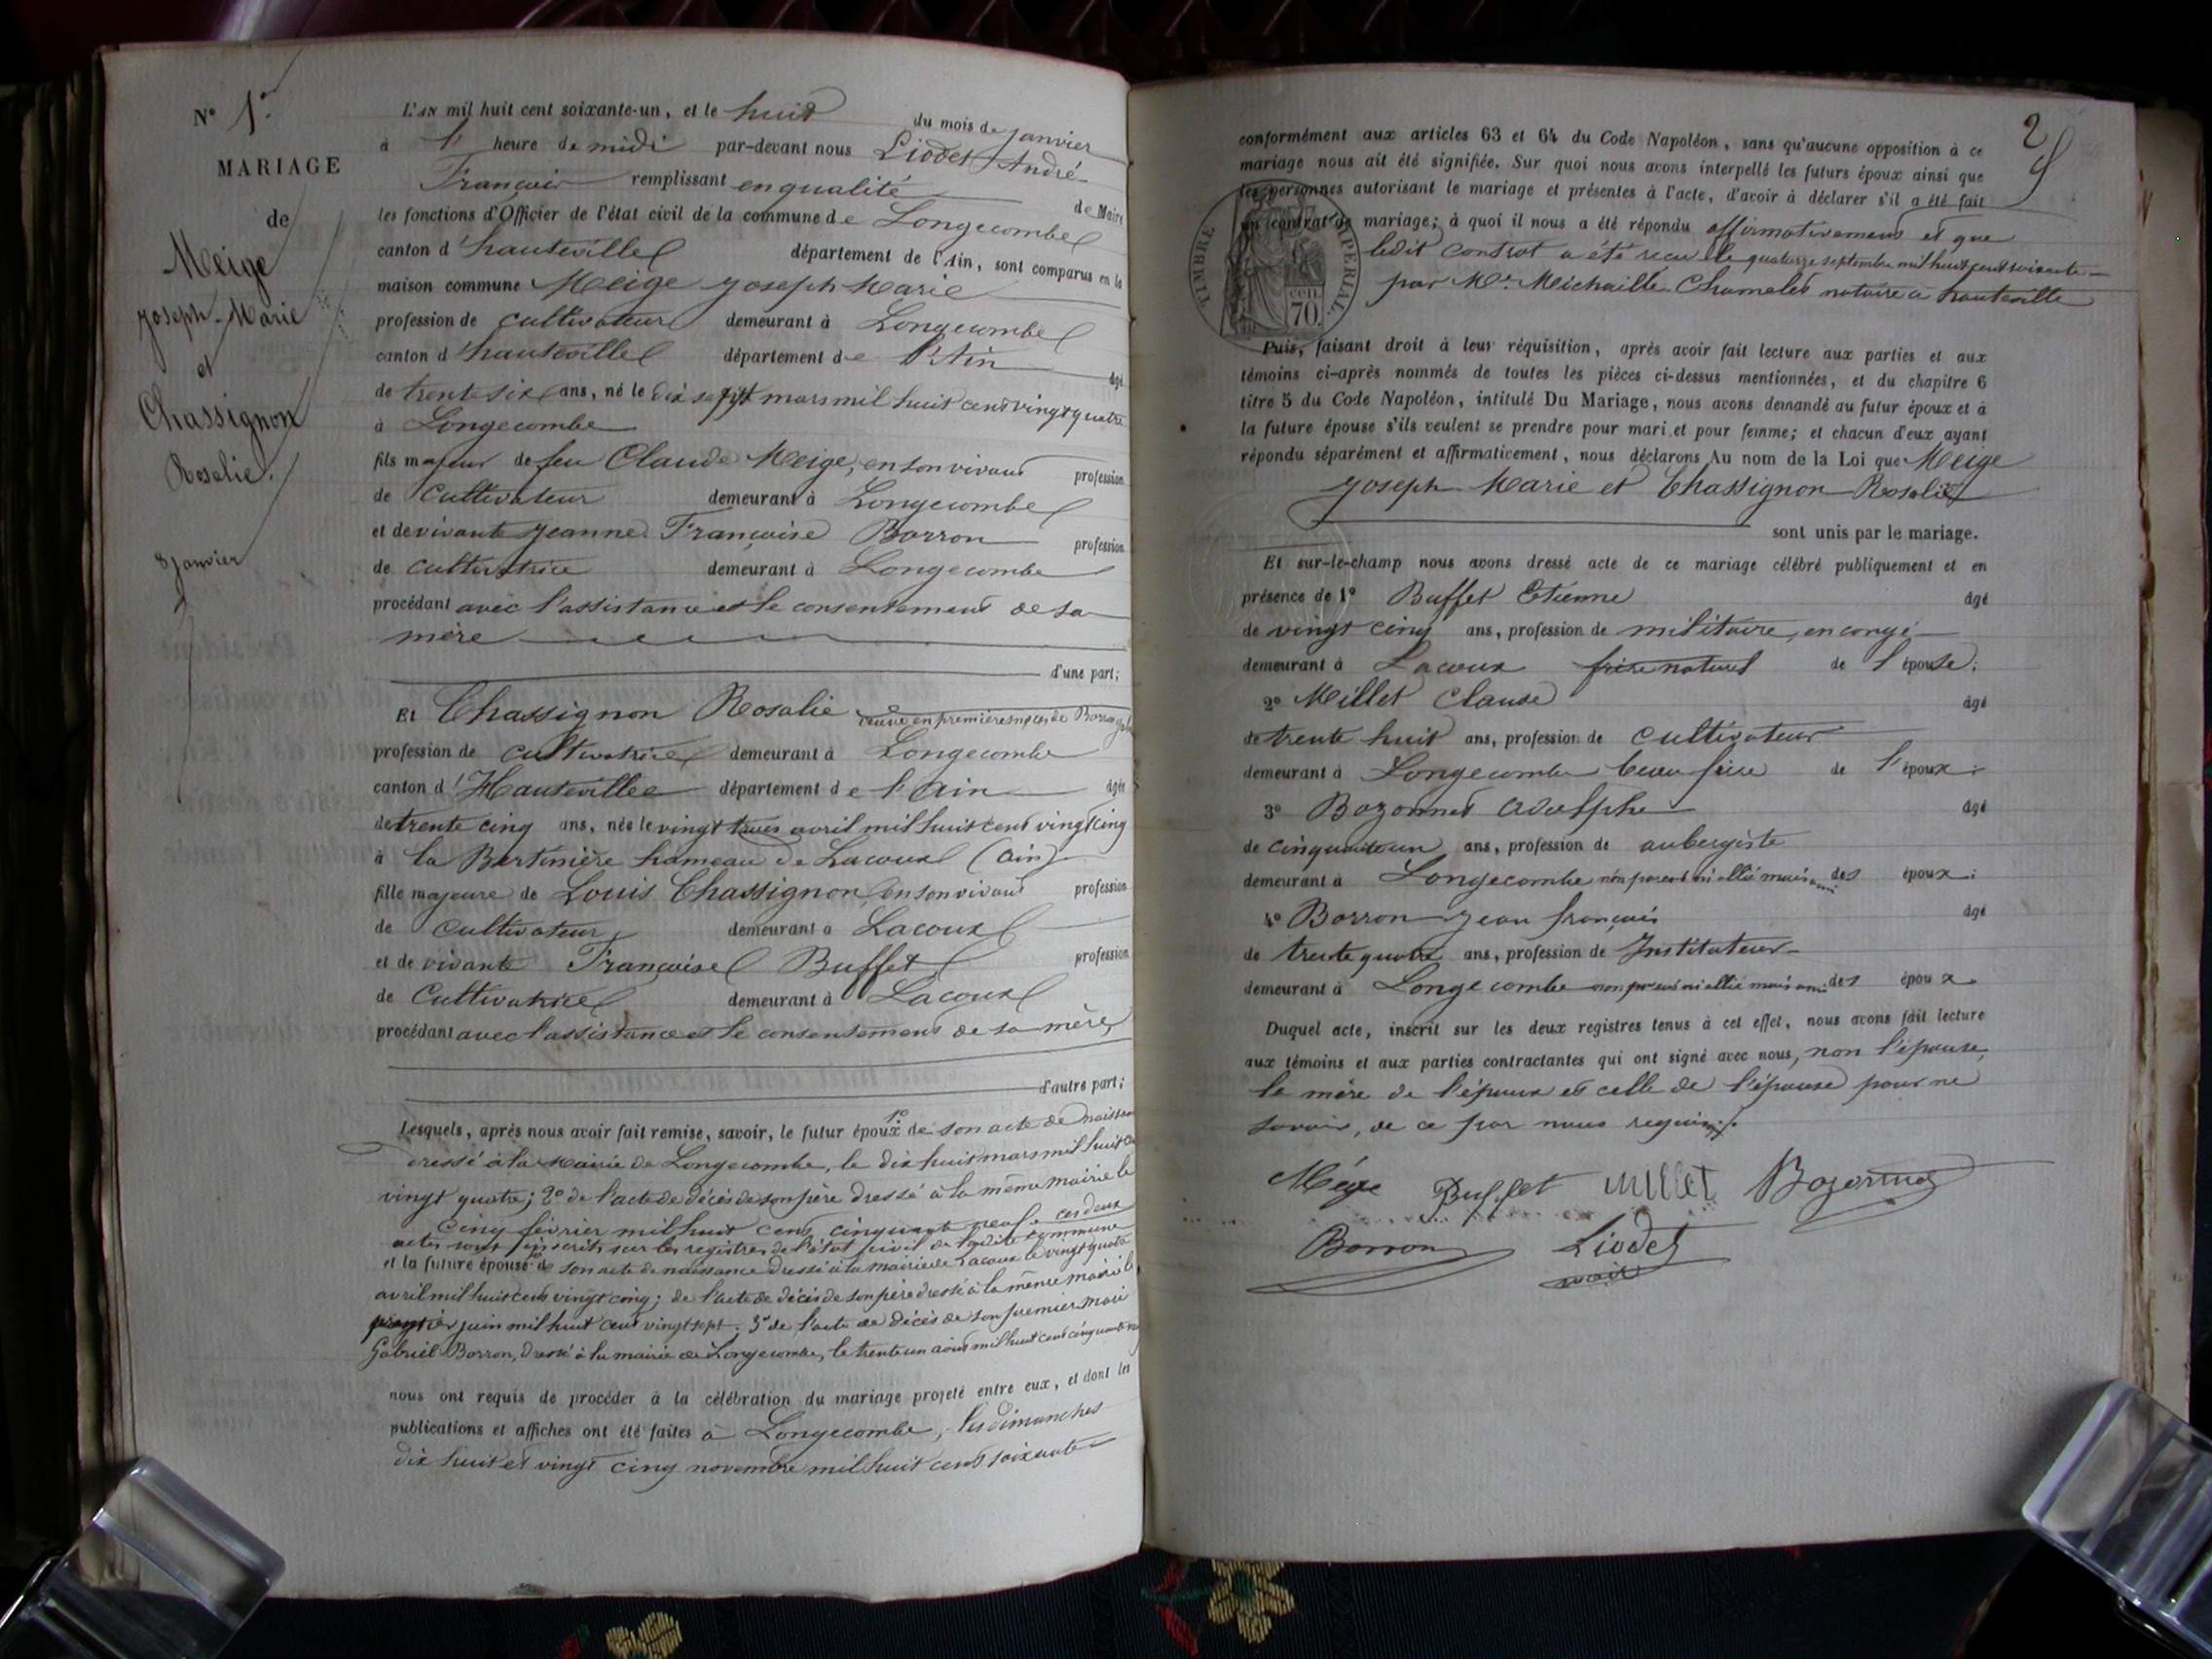 N° 1.
MARIAGE
de
Meige
Joseph-Marie
et
Chassignon
Rosalie.
8 janvier
L'AN mil huit cent soixante-un, et le huit du mois de janvier
à 1' heure de midi par-devant nous Liodet André
François remplissant en qualité de Maire
les fonctions d'Officier de l'état civil de la commune de Longecombe
canton d'hauteville département de l'Ain, sont comparus en la
maison commune Meige Joseph Marie
profession de cultivateur demeurant à Longecombe
canton d'hauteville département de l'Ain âgé
de trente six ans, né le dix sept mars mil huit cent vingt quatre
à Longecombe
fils majeur de feu Claude Meige, en son vivant profession
de cultivateur demeurant à Longecombe
et de vivante Jeanne Françoise Borron profession
de cultivatrice demeurant à Longecombe
procédant avec l'assistance et le consentement de sa
mère
d'une part;
Et Chassignon Rosalie veuve en premières noces de Borron
profession de cultivatrice demeurant à Longecombe
canton d'Hauteville département de l'Ain âgée
de trente cinq ans, née le vingt trois avril mil huit cent vingt cinq
à la Bertinière hameau de Lacoux (Ain)
fille majeure de Louis Chassignon en son vivant profession
de cultivateur demeurant à Lacoux
et de vivante Françoise Buffet profession
de Cultivatrice demeurant à Lacoux
procédant avec l'assistance et le consentement de sa mère,
d'autre part;
Lesquels, après nous avoir fait remise, savoir, le futur époux 1° de son acte de naissance
dressé à la Mairie de Longecombe, le dix huit mars mil huit cent
vingt quatre; 2° de l'acte de décès de son père dressé à la même mairie le
cinq février mil huit cent cinquante neuf. ces deux
actes sont inscrits sur les registres de l'état civil de ladite commune
et la future épouse 1° de son acte de naissance dressé à la mairie de Lacoux le vingt quatre
avril mil huit cent vingt cinq; de l'acte de décès de son père dressé à la même mairie le
premier juin mil huit cent vingt sept; 3° de l'acte de décès de son premier mari
Gabriel Borron, dressé à la mairie de Longecombe, le trente un août mil huit cent cinquante
nous ont requis de procéder à la célébration du mariage projeté entre eux, et dont les
publications et affiches ont été faites à Longecombe, les dimanches
dix huit et vingt cinq novembre mil huit cent soixante
2
conformément aux articles 63 et 64 du Code Napoléon, sans qu'aucune opposition à ce
mariage nous ait été signifiée. Sur quoi nous avons interpellé les futurs époux ainsi que
les personnes autorisant le mariage et présentes à l'acte, d'avoir à déclarer s'il a été fait
un contrat de mariage; à quoi il nous a été répondu affirmativement et que
ledit contrat a été reçu le quatorze septembre mil huit cent soixante
par Me Michaille Chamelet notaire à hauteville
TIMBRE IMPÉRIAL
cen. 70.
Puis, faisant droit à leur réquisition, après avoir fait lecture aux parties et aux
témoins ci-après nommés de toutes les pièces ci-dessus mentionnées, et du chapitre 6
titre 5 du Code Napoléon, intitulé Du Mariage, nous avons demandé au futur époux et à
la future épouse s'ils veulent se prendre pour mari et pour femme; et chacun d'eux ayant
répondu séparément et affirmativement, nous déclarons Au nom de la Loi que Meige
Joseph Marie et Chassignon Rosalie
sont unis par le mariage.
Et sur-le-champ nous avons dressé acte de ce mariage célébré publiquement et en
présence de 1° Buffet Etienne âgé
de vingt cinq ans, profession de militaire, en congé
demeurant à Lacoux frère naturel de l'épouse.
2° Millet Claude âgé
de trente huit ans, profession de cultivateur
demeurant à Longecombe beau frère de l'époux.
3° Bozonnet Adolphe âgé
de cinquante un ans, profession de aubergiste
demeurant à Longecombe non parent ni allié mais ami des époux.
4° Borron Jean françois âgé
de trente quatre ans, profession de Instituteur
demeurant à Longecombe non parent ni allié mais ami des époux.
Duquel acte, inscrit sur les deux registres tenus à cet effet, nous avons fait lecture
aux témoins et aux parties contractantes qui ont signé avec nous, non l'épouse,
la mère de l'époux et celle de l'épouse pour ne
savoir, de ce par nous requis.
Mége Buffet Millet Bozonnet
Borron Liodet
maire